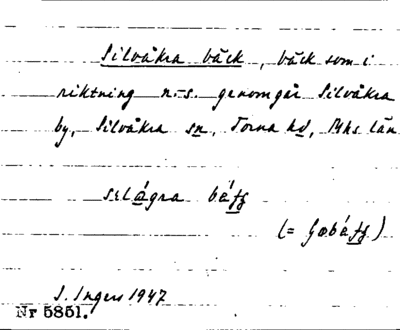 Silvåkra bäck, bäck som i
riktning n.-s. genomgår Silvåkra
by, Silvåkra sn, Torna hd, Mhs län
selágra
I. Ingers 1947
Nr 5851.